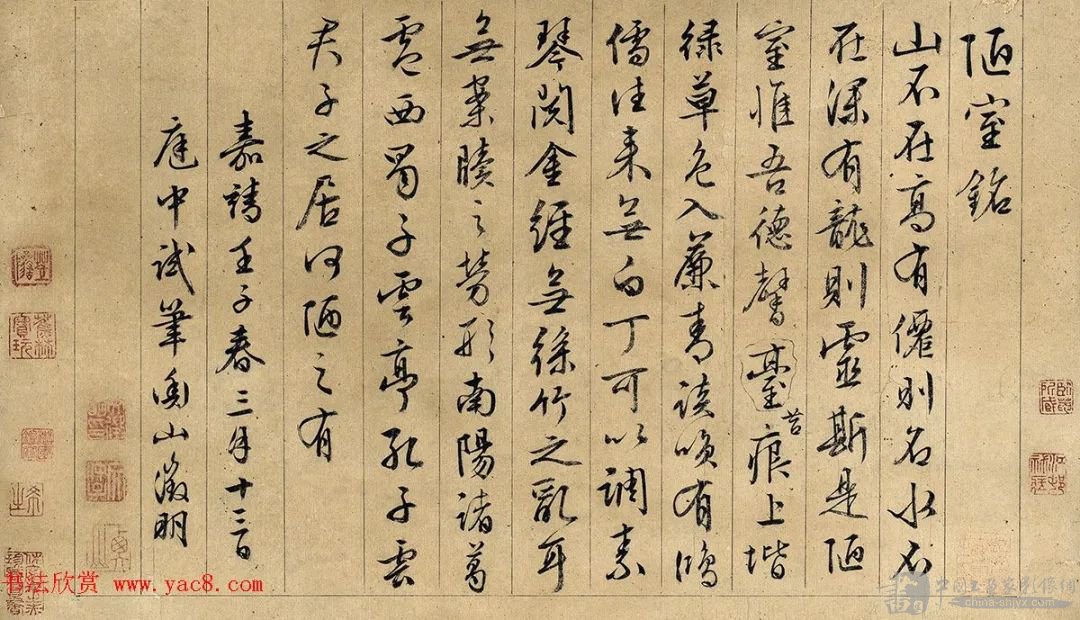 陋室銘
山不在高有僊則名水不
在深有龍則靈斯是陋
室惟吾德馨臺苔痕上堦
緑草色入簾青談咲有鴻
儒往来無白丁可以調素
琴閱金經無絲竹之亂耳
無案牘之勞形南陽諸葛
廬西蜀子雲亭孔子云
君子之居何陋之有
嘉靖壬子春三月十三日
庭中試筆衡山徵明
书法欣赏 www.yac8.com
china-shjyx.com